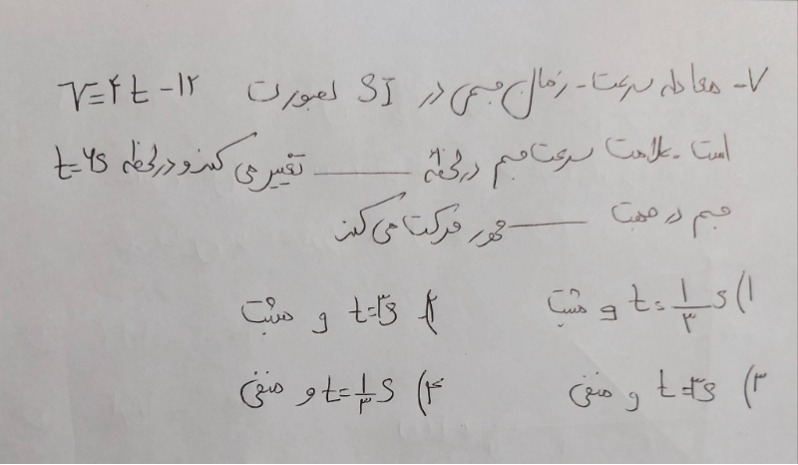 ۷- معادله سرعت - زمان جسمی در SI بصورت V=۴t-۱۲
است. علامت سرعت جسم در لحظهٔ ____ تغییر می کند و در لحظه t=۶s
جسم در جهت ____ محور حرکت می کند
۱) t=۱/۳ s و مثبت ۲) t=۳s و مثبت
۳) t=۳s و منفی ۴) t=۱/۳ s و منفی